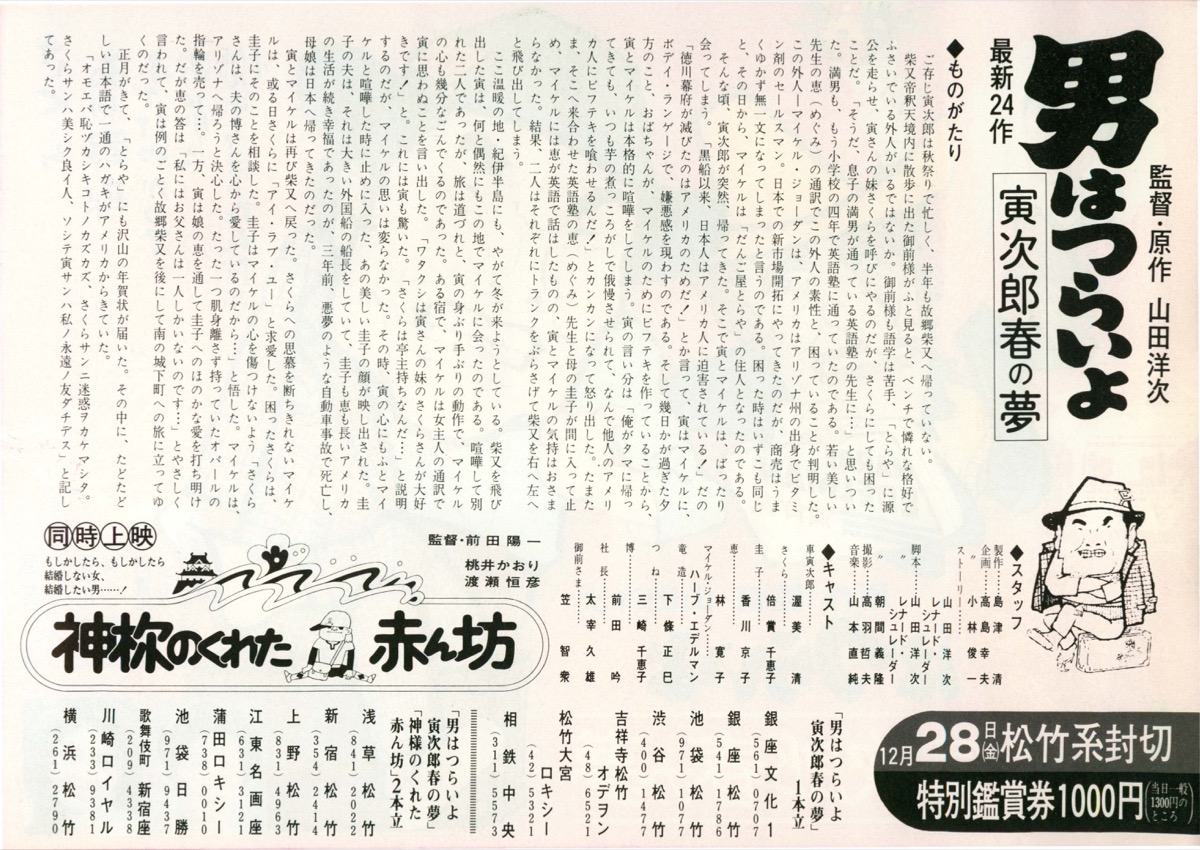 男はつらいよ
監督・原作 山田洋次
最新24作
寅次郎春の夢
◆ものがたり
ご存じ寅次郎は秋祭りで忙しく、半年も故郷柴又へ帰っていない。
柴又帝釈天境内に散歩に出た御前様がふと見ると、ベンチで憐れな格好で
ふさいでいる外人がいるではないか。御前様も語学は苦手、「とらや」に源
公を走らせ、寅さんの妹さくらを呼びにやるのだが、さくらにしても困った
ことだ。「そうだ、息子の満男が通っている英語塾の先生に…」と思いつい
た。満男も、もう小学校の四年で英語塾に通っていたのである。若い美しい
先生の恵(めぐみ)の通訳でこの外人の素性と、困っていることが判明した。
この外人―マイケル・ジョーダンは、アメリカはアリゾナ州の出身でビタミ
ン剤のセールスマン。日本での新市場開拓にやってきたのだが、商売はうま
くゆかず無一文になってしまったと言うのである。困った時はいずこも同じ
と、その日から、マイケルは「だんご屋とらや」の住人となったのである。
そんな頃、寅次郎が突然、帰ってきた。そこで寅とマイケルは、ばったり
会ってしまう。「黒船以来、日本人はアメリカ人に迫害されている!」だの
「徳川幕府が滅びたのはアメリカのためだ!」とか言って、寅はマイケルに、
ボディ・ランゲージで、嫌悪感を現わすのである。そして幾日かが過ぎた夕
方のこと、おばちゃんが、マイケルのためにビフテキを作っていることから、
寅とマイケルは本格的に喧嘩をしてしまう。寅の言い分は「俺がタマに帰っ
てきても、いつも芋の煮っころがしで我慢させられて、なんで他人のアメリ
カ人にビフテキを喰わせるんだ!」とカンカンになって怒り出した。たまた
ま、そこへ来合わせた英語塾の恵(めぐみ)先生と母の圭子が間に入って止
め、マイケルには恵が英語で話はしたものの、寅とマイケルの気持はおさま
らなかった。結果、二人はそれぞれにトランクをぶらさげて柴又を右へ左へ
と飛び出してしまう。
ここ温暖の地、紀伊半島にも、やがて冬が来ようとしている。柴又を飛び
出した寅は、何と偶然にもこの地でマイケルに会ったのである。喧嘩して別
れた二人であったが、旅は道づれと、寅の身ぶり手ぶりの動作で、マイケル
の心も幾分なごんでくるのであった。ある宿で、マイケルは女主人の通訳で
寅に思わぬことを言い出した。「ワタクシは寅さんの妹のさくらさんが大好
きです!」と。これには寅も驚いた。「さくらは亭主持ちなんだ…」と説明
するのだが、マイケルの思いは変らなかった。その時、寅の心にもふとマイ
ケルと喧嘩した時に止めに入った、あの美しい圭子の顔が映し出された。圭
子の夫は、それは大きい外国船の船長をしていて、圭子も恵も長いアメリカ
の生活が続き幸福であったのが、三年前、悪夢のような自動車事故で死亡し、
母娘は日本へ帰ってきたのだった。
寅とマイケルは再び柴又へ戻った。さくらへの思慕を断ちきれないマイケ
ルは、或る日さくらに「アイ・ラブ・ユー」と求愛した。困ったさくらは、
圭子にそのことを相談した。圭子はマイケルの心を傷つけないよう「さくら
さんは、夫の博さんを心から愛しているのだから…」と悟した。マイケルは、
アリゾナへ帰ろうと決心した。たった一つ肌身離さず持っていたオパールの
指輪を売って…。一方、寅は娘の恵を通して圭子へのほのかな愛を打ち明け
た。だが恵の答は「私にはお父さんは一人しかいないのです…」とやさしく
言われて、寅は例のごとく故郷柴又を後にして南の城下町への旅に立ってゆ
くのだった。
正月がきて、「とらや」にも沢山の年賀状が届いた。その中に、たどたど
しい日本語で一通のハガキがアメリカからきていた。
「オモエバ恥ヅカシキコトノカズカズ、さくらサンニ迷惑ヲカケマシタ。
さくらサンハ美シク良イ人、ソシテ寅サンハ私ノ永遠ノ友ダチデス」と記し
てあった。
◆スタッフ
製作…島津清
企画…高島幸夫
〃 小林俊一
ストーリー…
山田洋次
レナード・シュレーダー
脚本…山田洋次
〃 レナード・シュレーダー
〃 朝間義隆
撮影…高羽哲夫
音楽…山本直純
◆キャスト
車寅次郎…渥美清
さくら…倍賞千恵子
圭子…香川京子
恵…林寛子
マイケル・ジョーダン…
ハーブ・エデルマン
竜造…下條正巳
つね…三崎千恵子
博…前田吟
社長…太宰久雄
御前さま…笠智衆
同時上映
もしかしたら、もしかしたら
結婚しない女、
結婚したい男……!
監督・前田陽一
桃井かおり
渡瀬恒彦
神様のくれた赤ん坊
12月28日(金)松竹系封切
特別鑑賞券1000円(当日一般1300円のところ)
「男はつらいよ
寅次郎春の夢」
1本立
銀座文化1 (561)0707
銀座松竹 (541)1786
池袋松竹 (971)1077
渋谷松竹 (400)1477
吉祥寺松竹オデヲン (48)6521
松竹大宮ロキシー (42)5321
相鉄中央 (311)5573
「男はつらいよ
寅次郎春の夢」
「神様のくれた
赤ん坊」2本立
浅草松竹 (841)2022
新宿松竹 (354)2414
上野松竹 (831)4963
江東名画座 (631)3121
蒲田ロキシー (738)0010
池袋日勝 (971)9437
歌舞伎町新宿座 (209)4338
川崎ロイヤル (233)9381
横浜松竹 (261)2790